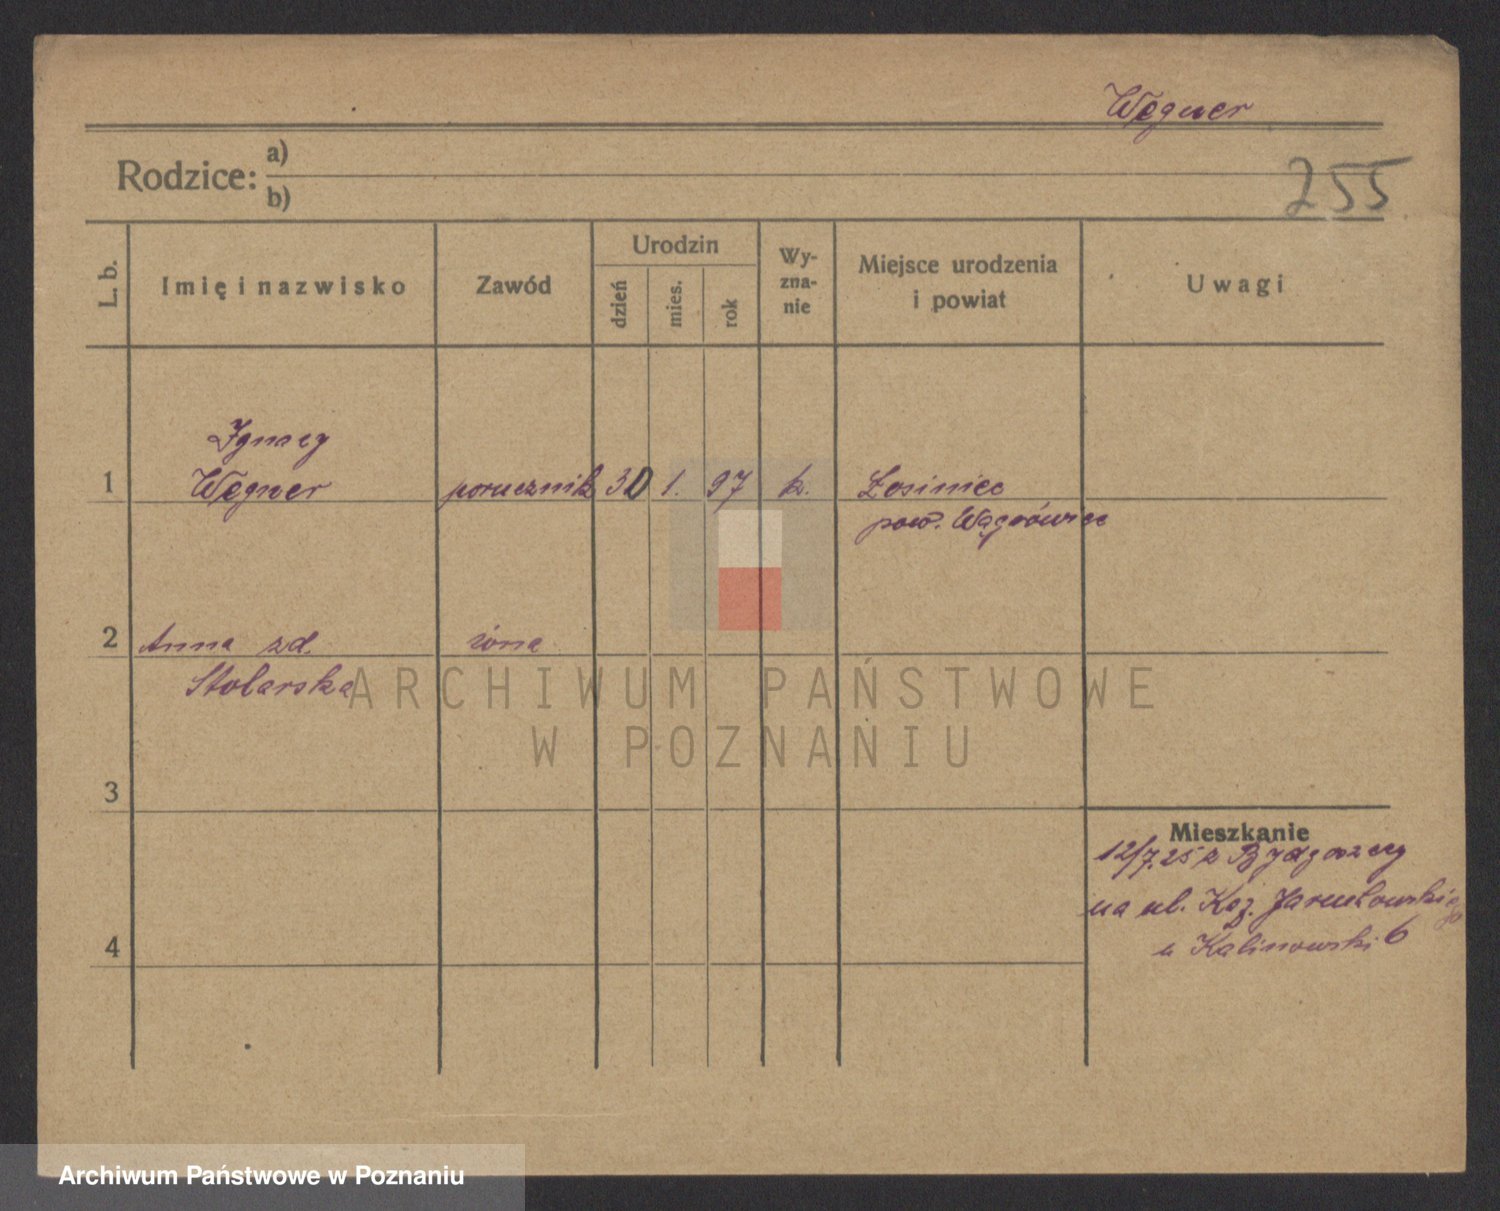 Węgner
Rodzice:
a)
b)
255
L. b.
Imię i nazwisko
Zawód
Urodzin
dzień
mies.
rok
Wy-
zna-
nie
Miejsce urodzenia
i powiat
Uwagi
Ignacy
1 Węgner porucznik 30 1. 97 k. Łosiniec
pow. Wągrówiec
2 Anna zd. żona
Stolarska
ARCHIWUM PAŃSTWOWE
W POZNANIU
3
Mieszkanie
12/7.25 z Bydgoszczy
na ul. Kaz. Jarułowskiego
4
u Kalinowski 6
Archiwum Państwowe w Poznaniu